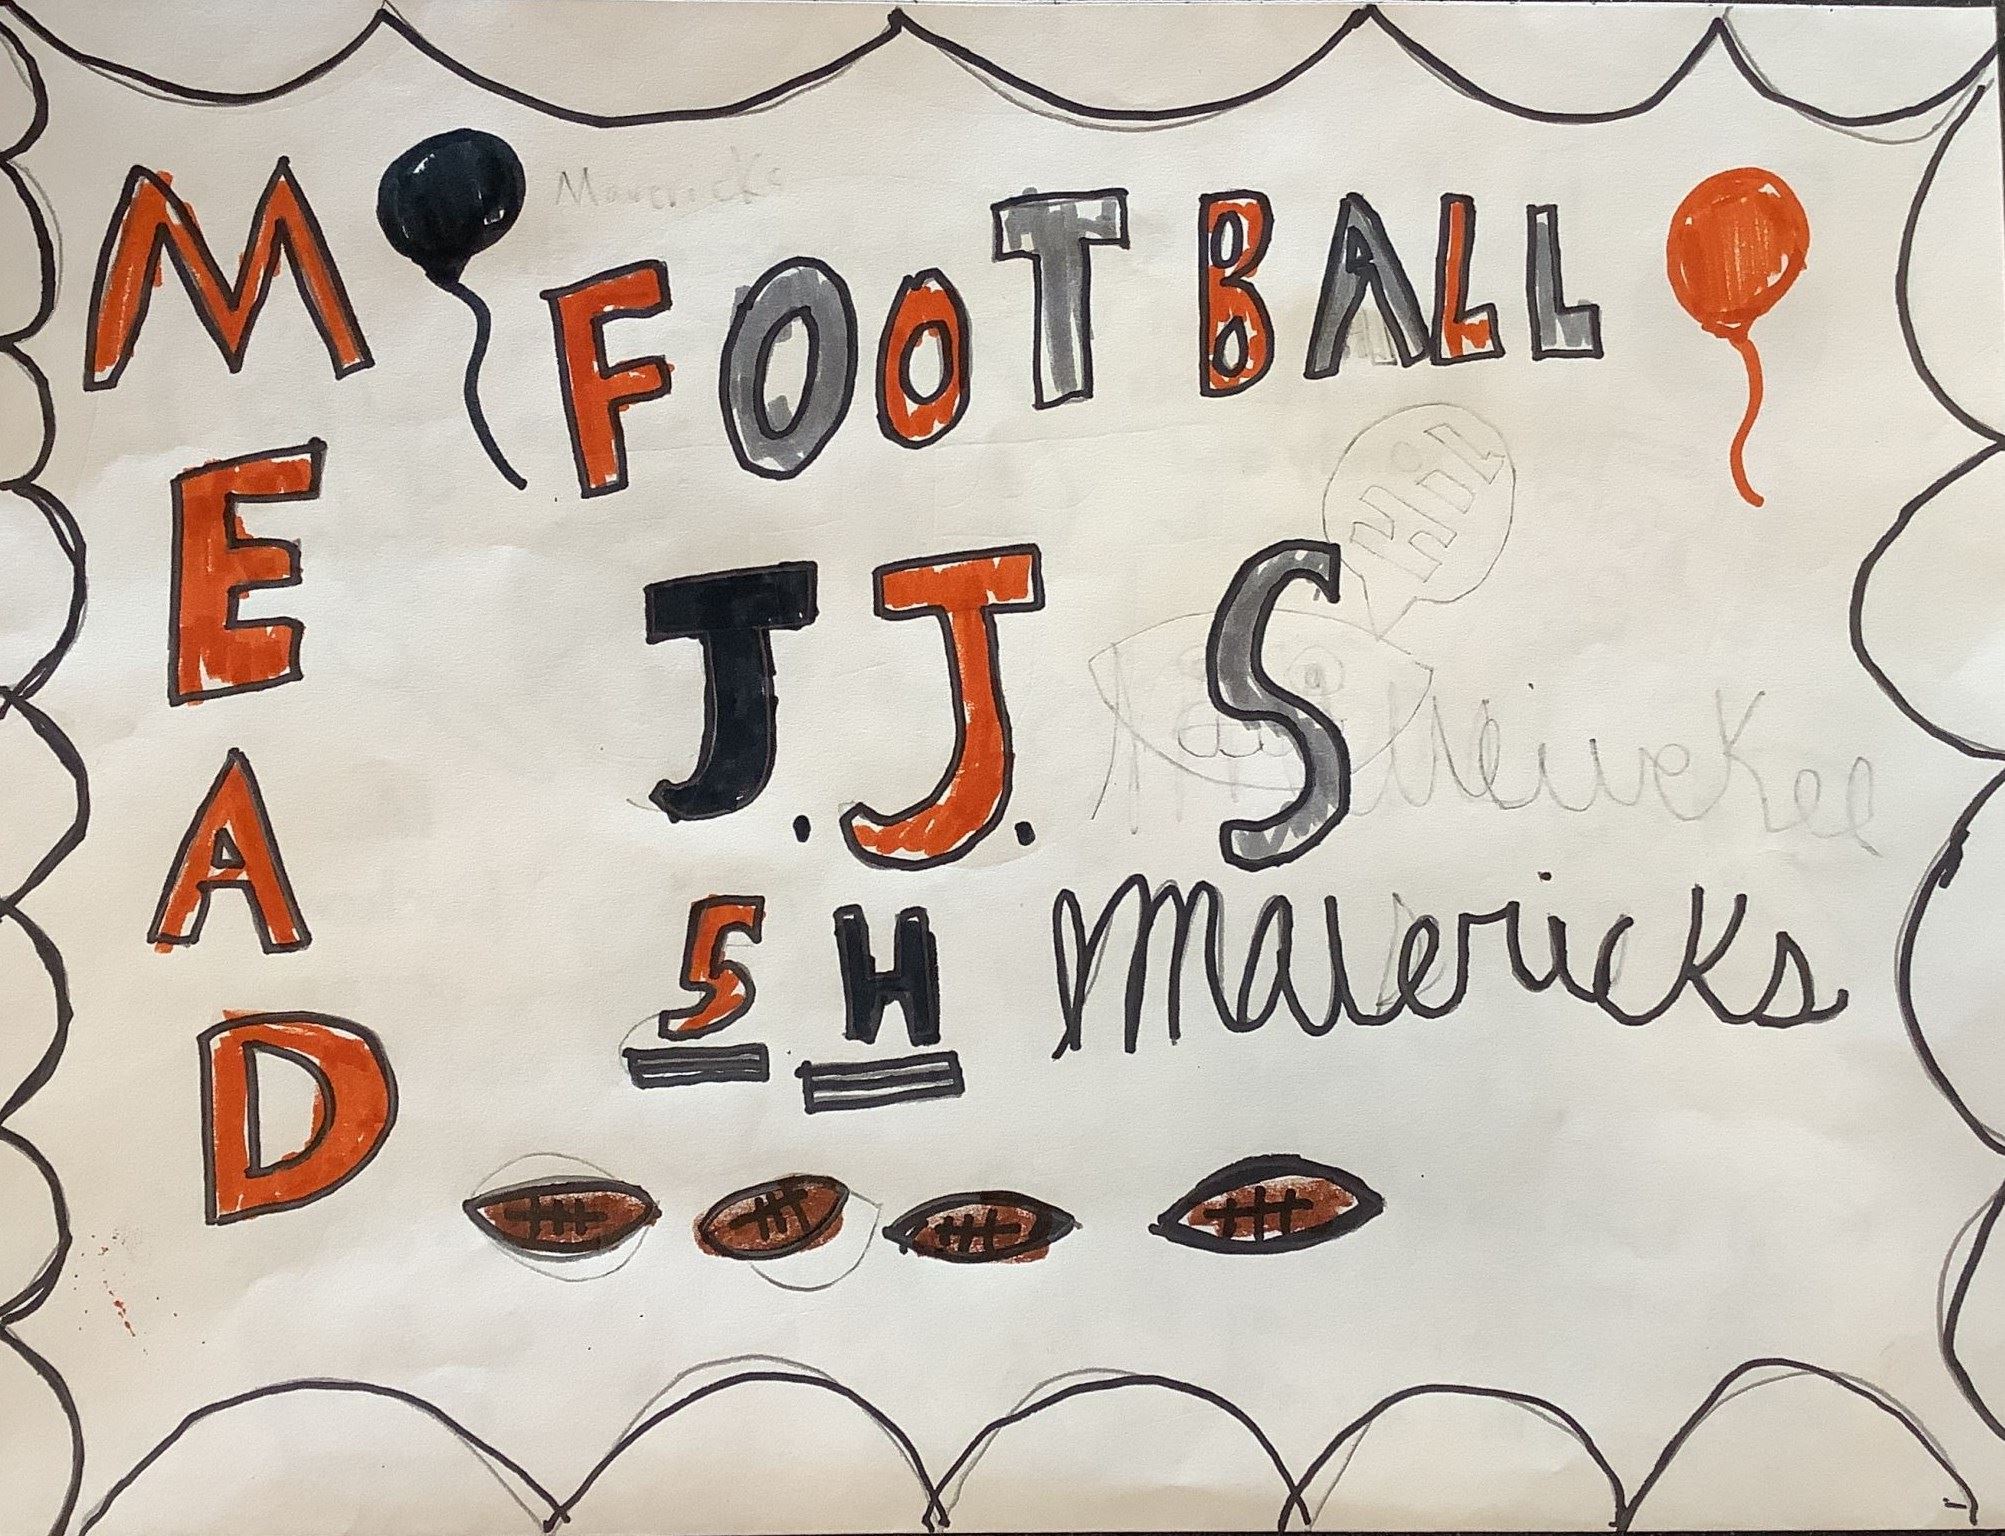 MEAD
Mavericks
FOOTBALL
Hi!
J.J.S
5H Mavericks